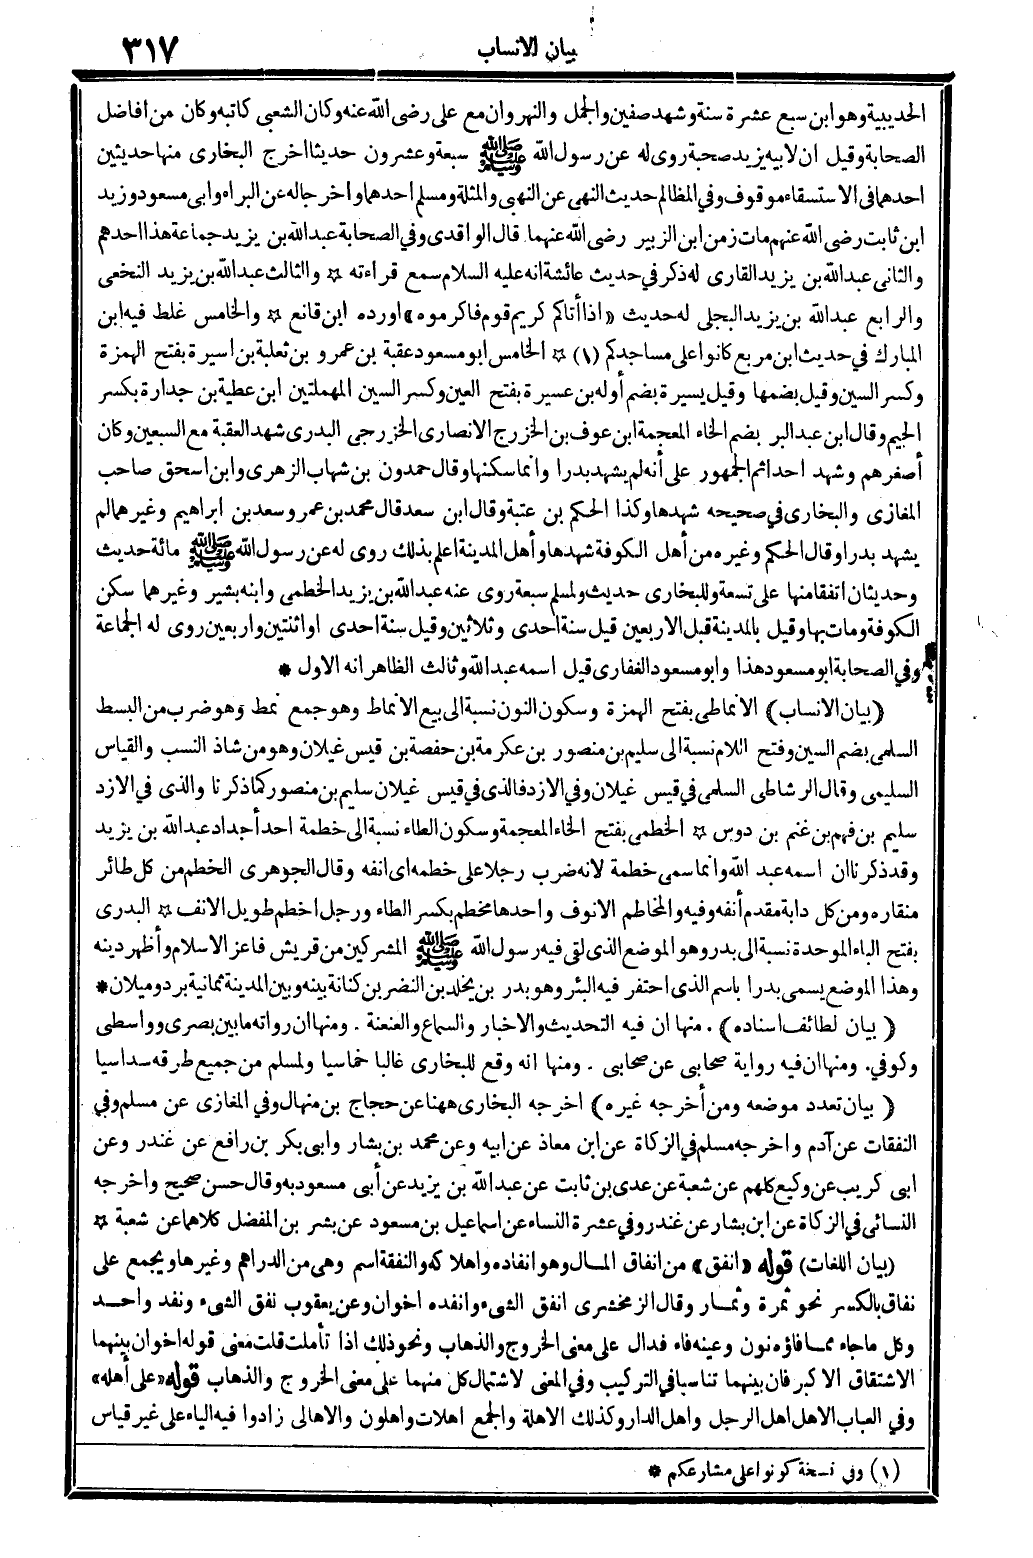 بيان الانساب
٣١٧
الحديبية وهو ابن سبع عشرة سنة وشهد صفين والجمل والنهروان مع على رضى الله عنه وكان الشعبى كاتبه وكان من افاضل
الصحابة وقيل ان لابيه يزيد صحبة روى له عن رسول الله ﷺ سبعة وعشرون حديثا اخرج البخارى منها حديثين
احدهما فى الاستسقاء موقوف وفي المظالم حديث النهى عن النهبى والمثلة ومسلم احدهما واخرجا له عن البراء وابى مسعود وزيد
ابن ثابت رضى الله عنهم مات زمن ابن الزبير رضى الله عنهما قال الواقدى وفي الصحابة عبدالله بن يزيد جماعة هذا احدهم
والثانى عبدالله بن يزيد القارى له ذكر في حديث عائشة انه عليه السلام سمع قراءته ☆ والثالث عبدالله بن يزيد النخعى
والرابع عبدالله بن يزيد البجلى له حديث «اذا أتاكم كريم قوم فاكرموه» اورده ابن قانع ☆ والخامس غلط فيه ابن
المبارك في حديث ابن مربع كانوا على مساجدكم (١) ☆ الخامس ابو مسعود عقبة بن عمرو بن ثعلبة بن اسيرة بفتح الهمزة
وكسر السين وقيل بضمها وقيل يسيرة بضم أوله بن عسيرة بفتح العين وكسر السين المهملتين ابن عطية بن جدارة بكسر
الجيم وقال ابن عبد البر بضم الخاء المعجمة ابن عوف بن الخزرج الانصارى الخزرجى البدرى شهد العقبة مع السبعين وكان
أصغرهم وشهد احدا ثم الجمهور على أنه لم يشهد بدرا وانما سكنها وقال حمدون بن شهاب الزهرى وابن اسحق صاحب
المغازى والبخارى في صحيحه شهدها وكذا الحكم بن عتبة وقال ابن سعد قال محمد بن عمر وسعد بن ابراهيم وغيرهما لم
يشهد بدرا وقال الحكم وغيره من أهل الكوفة شهدها وأهل المدينة اعلم بذلك روى له عن رسول الله ﷺ مائة حديث
وحديثان اتفقا منها على تسعة وللبخارى حديث ولمسلم سبعة روى عنه عبدالله بن يزيد الخطمى وابنه بشير وغيرهما سكن
الكوفة ومات بها وقيل بالمدينة قبل الاربعين قيل سنة احدى وثلاثين وقيل سنة احدى او اثنتين واربعين روى له الجماعة
وفي الصحابة ابو مسعود هذا وابو مسعود الغفارى قيل اسمه عبدالله وثالث الظاهر انه الاول *
(بيان الانساب) الانماطى بفتح الهمزة وسكون النون نسبة الى بيع الانماط وهو جمع نمط وهو ضرب من البسط
السلمى بضم السين وفتح اللام نسبة الى سليم بن منصور بن عكرمة بن حفصة بن قيس غيلان وهو من شاذ النسب والقياس
السليمى وقال الرشاطى السلمى في قيس غيلان وفي الازد فالذى في قيس غيلان سليم بن منصور كما ذكرنا والذى في الازد
سليم بن فهم بن غنم بن دوس ☆ الخطمى بفتح الخاء المعجمة وسكون الطاء نسبة الى خطمة احد أجداد عبدالله بن يزيد
وقد ذكرنا ان اسمه عبد الله وانما سمى خطمة لانه ضرب رجلا على خطمه اى انفه وقال الجوهرى الخطم من كل طائر
منقاره ومن كل دابة مقدم أنفه وفيه والمخاطم الانوف واحدها مخطم بكسر الطاء ورجل اخطم طويل الانف ☆ البدرى
بفتح الباء الموحدة نسبة الى بدر وهو الموضع الذى لقى فيه رسول الله ﷺ المشركين من قريش فاعز الاسلام وأظهر دينه
وهذا الموضع يسمى بدرا باسم الذى احتفر فيه البئر وهو بدر بن يخلد بن النضر بن كنانة بينه وبين المدينة ثمانية برد وميلان *
(بيان لطائف اسناده). منها ان فيه التحديث والاخبار والسماع والعنعنة. ومنها ان رواته ما بين بصرى وواسطى
وكوفي. ومنها ان فيه رواية صحابى عن صحابى. ومنها انه وقع للبخارى غالبا خماسيا ولمسلم من جميع طرقه سداسيا
(بيان تعدد موضعه ومن أخرجه غيره) اخرجه البخارى ههنا عن حجاج بن منهال وفي المغازى عن مسلم وفي
النفقات عن آدم واخرجه مسلم في الزكاة عن ابن معاذ عن ابيه وعن محمد بن بشار وابى بكر بن رافع عن غندر وعن
ابى كريب عن وكيع كلهم عن شعبة عن عدى بن ثابت عن عبدالله بن يزيد عن أبى مسعود به وقال حسن صحيح واخرجه
النسائى في الزكاة عن ابن بشار عن غندر وفي عشرة النساء عن اسماعيل بن مسعود عن بشر بن المفضل كلاهما عن شعبة ☆
(بيان اللغات) قوله «انفق» من انفاق المال وهو انفاده واهلاكه والنفقة اسم وهى من الدراهم وغيرها ويجمع على
نفاق بالكسر نحو ثمرة وثمار وقال الزمخشرى انفق الشىء وانفده اخوان وعن يعقوب نفق الشىء ونفد واحد
وكل ما جاء مما فاؤه نون وعينه فاء فدال على معنى الخروج والذهاب ونحو ذلك اذا تأملت قلت معنى قوله اخوان بينهما
الاشتقاق الاكبر فان بينهما تناسبا في التركيب وفي المعنى لاشتمال كل منهما على معنى الخروج والذهاب قوله «على أهله»
وفي العباب الاهل اهل الرجل واهل الدار وكذلك الاهلة والجمع اهلات واهلون والاهالى زادوا فيه الياء على غير قياس
(١) وفى نسخة كونوا على مشاعركم *